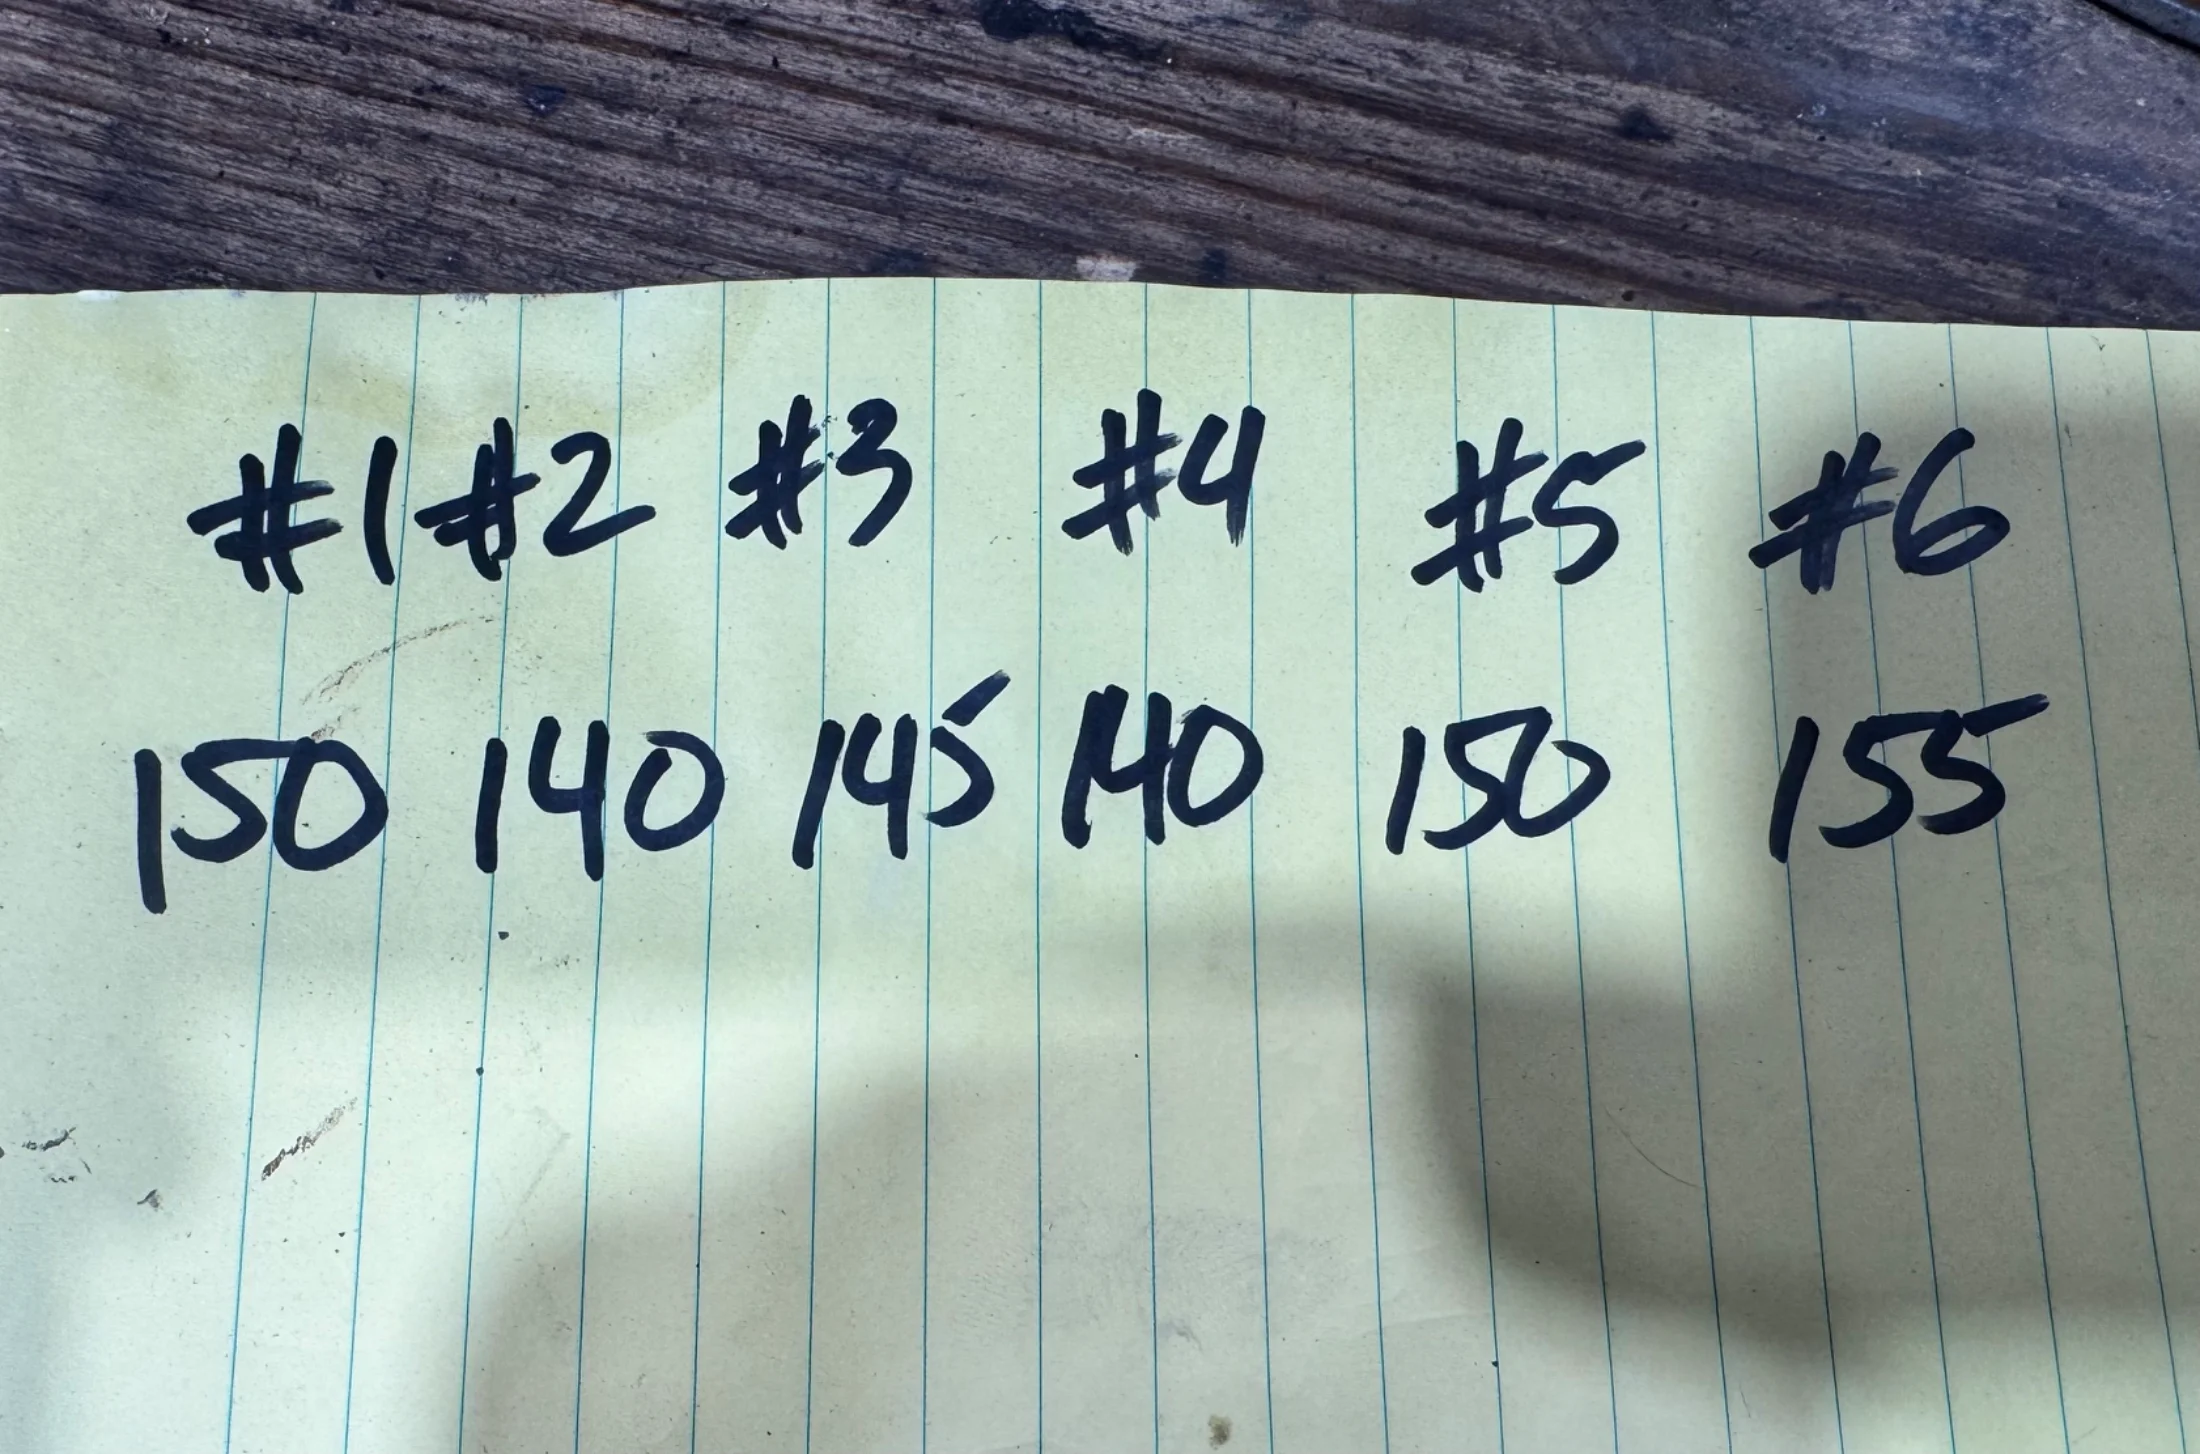 #1 #2 #3 #4 #5 #6
150 140 145 140 150 155